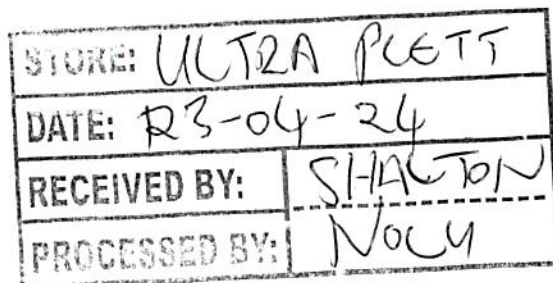 STORE: ULTRA PLETT
DATE: 23-04-24
RECEIVED BY: SHALTON
PROCESSED BY: